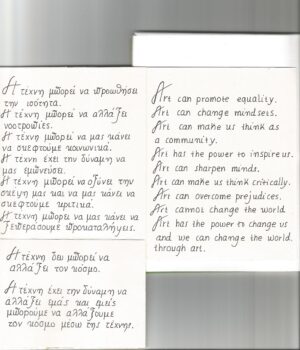 Η τέχνη μπορεί να προωθήσει
την ισότητα.
Η τέχνη μπορεί να αλλάξει
νοοτροπίες.
Η τέχνη μπορεί να μας κάνει
να σκεφτούμε κοινωνικά.
Η τέχνη έχει την δύναμη να
μας εμπνεύσει.
Η τέχνη μπορεί να οξύνει την
σκέψη μας και να μας κάνει να
σκεφτούμε κριτικά.
Η τέχνη μπορεί να μας κάνει να
ξεπεράσουμε προκαταλήψεις.
Η τέχνη δεν μπορεί να
αλλάξει τον κόσμο.
Η τέχνη έχει την δύναμη να
αλλάξει εμάς και εμείς
μπορούμε να αλλάξουμε
τον κόσμο μέσω της τέχνης.
Art can promote equality.
Art can change mindsets.
Art can make us think as
a community.
Art has the power to inspire us.
Art can sharpen minds.
Art can make us think critically.
Art can overcome prejudices.
Art cannot change the world.
Art has the power to change us
and we can change the world
through art.